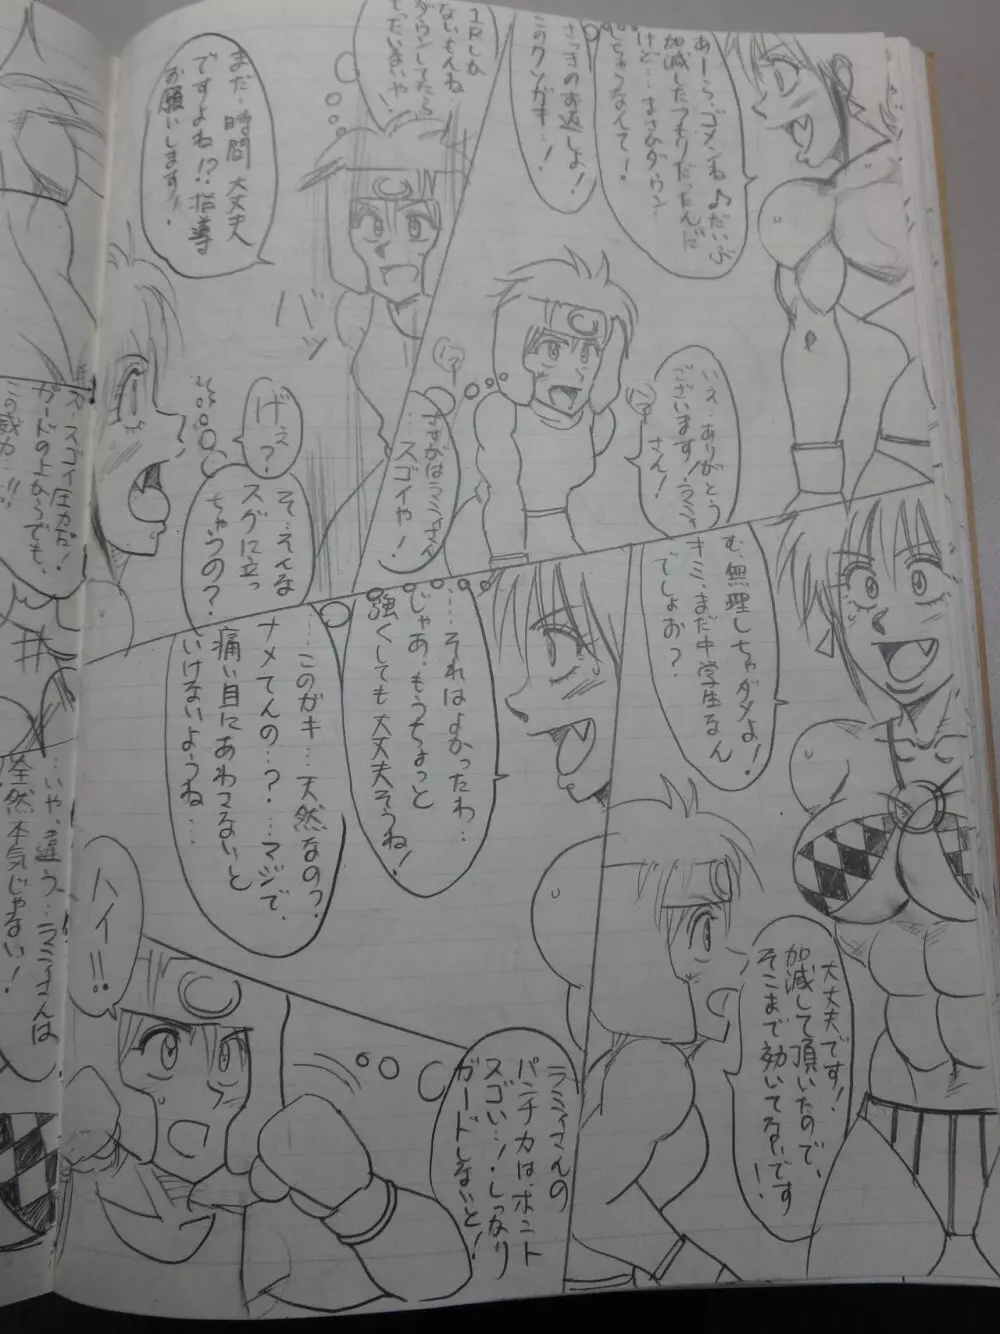 あーら、ゴメンね♪だいぶ
加減したつもりだったんだ
けど…まさかダウン
しちゃうなんて!
さっきのお返しよ!
このクソガキ…!
いえ…ありがとう
ございます!ラミィ
さん!
さすがはラミィさん
…スゴイや!
1Rしか
ないもんね…
ダウンしてたら
もったいないや…
まだ…時間大丈夫
ですよね!?指導
お願いします!!
バッ
げぇ?
そ…そんな
スグに立っ
ちゃうの?
む、無理しちゃダメよ!
キミ、まだ中学生なん
でしょお?
大丈夫です!
加減して頂いたので、
そこまで効いてないです!
…それはよかったわ…
じゃあ。もうちょっと
強くしても大丈夫そうね!
…このガキ…天然なの?
ナメてんの…?…マジで、
痛い目にあわさないと
いけないようね…
ラミィさんの
パンチ力は、ホント
スゴい…!しっかり
ガードしないと!
ハイ!!
ス、スゴイ圧力だ!
ガードの上からでも、
この威力…!!
…いや、違う…ラミィさんは
全然本気じゃない!